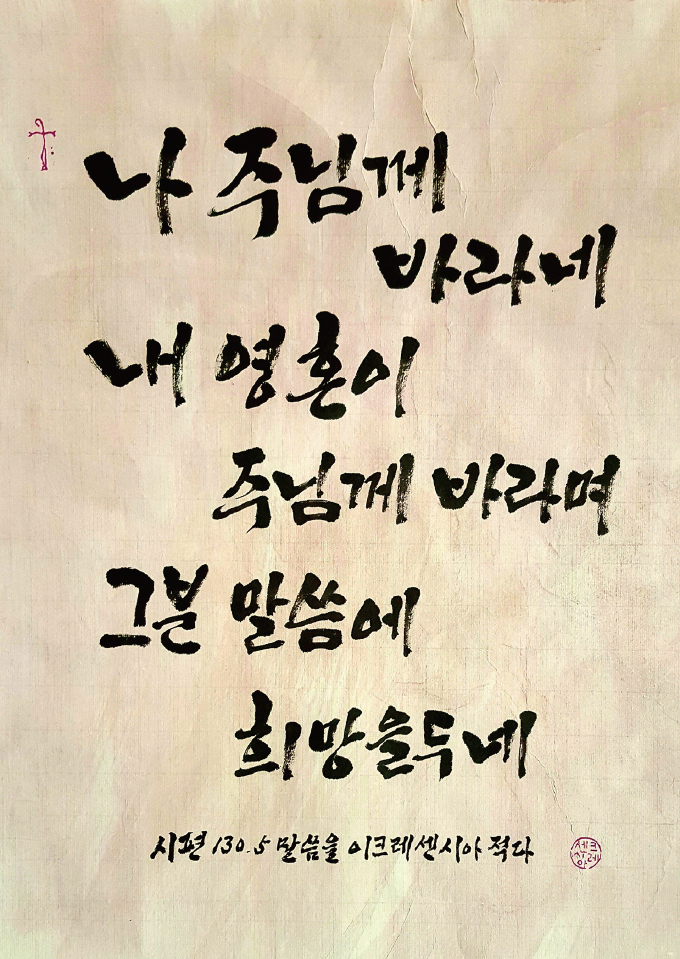 나 주님께
바라네
내 영혼이
주님께 바라며
그분 말씀에
희망을두네
시편 130.5 말씀을 이크레센시아 적다
크레센시아